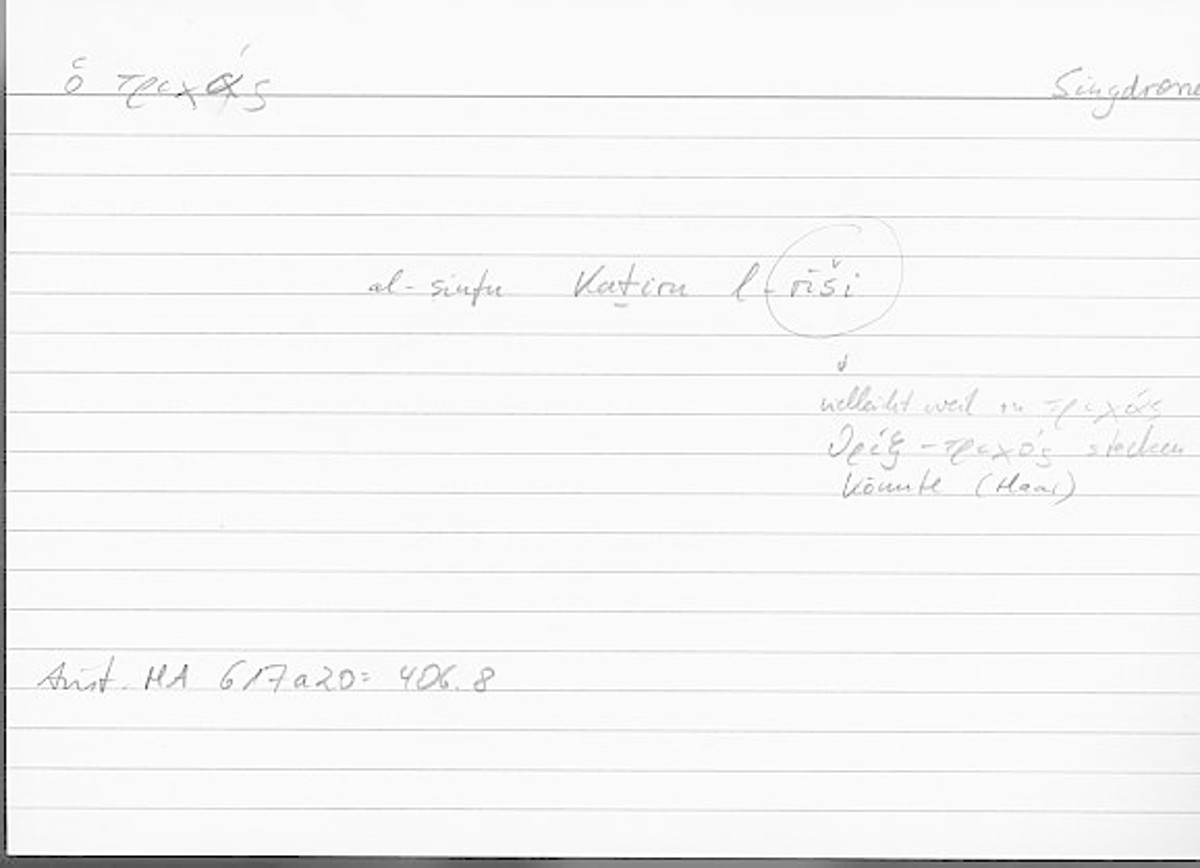 ὁ τριχάς Singdrone
al-sinfu Kaṯiru l-rīši
↓
vielleicht weil in τριχάς
θρίξ - τριχός stecken
könnte (Haar)
Arist. HA 617a20 = 406.8